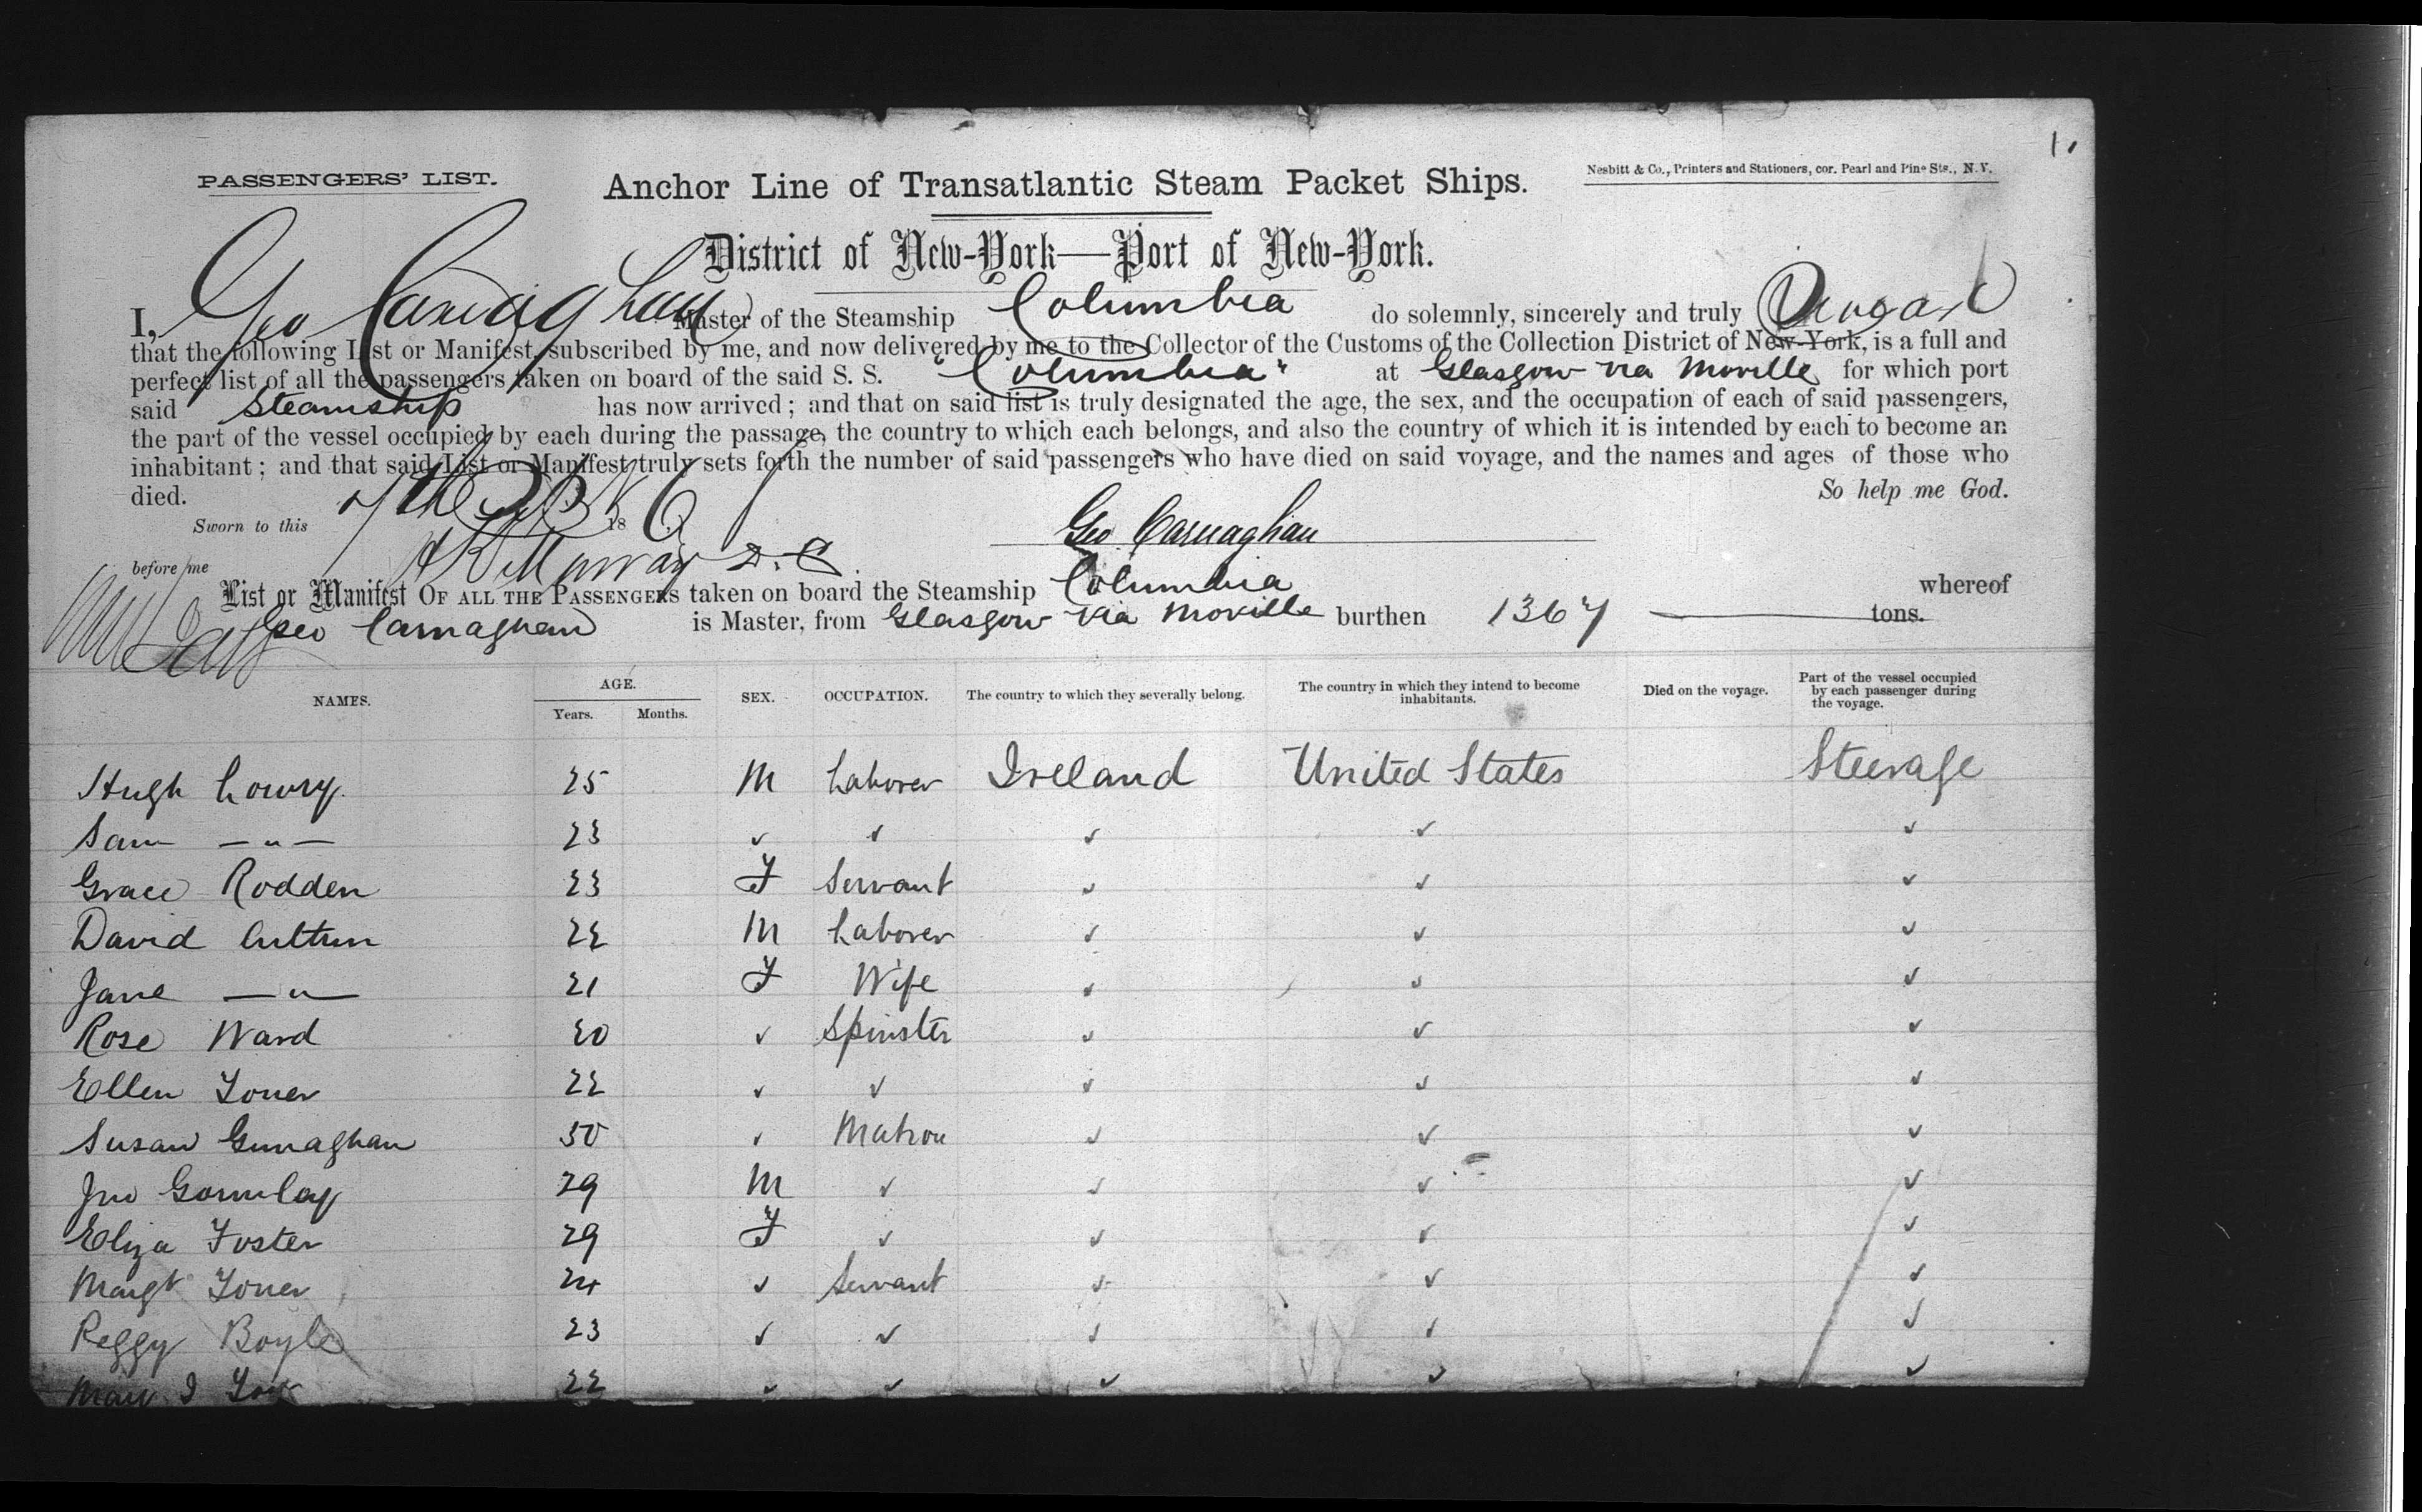 1.
PASSENGERS' LIST.
Anchor Line of Transatlantic Steam Packet Ships.
Nesbitt & Co., Printers and Stationers, cor. Pearl and Pine Sts., N.Y.
District of New-York—Port of New-York.
I, Geo Carnaghan Master of the Steamship Columbia do solemnly, sincerely and truly Swear
that the following List or Manifest, subscribed by me, and now delivered by me to the Collector of the Customs of the Collection District of New-York, is a full and
perfect list of all the passengers taken on board of the said S. S. "Columbia" at Glasgow via Moville for which port
said Steamship has now arrived; and that on said list is truly designated the age, the sex, and the occupation of each of said passengers,
the part of the vessel occupied by each during the passage, the country to which each belongs, and also the country of which it is intended by each to become an
inhabitant; and that said List or Manifest truly sets forth the number of said passengers who have died on said voyage, and the names and ages of those who
died. So help me God.
Sworn to this 18
Geo. Carnaghan
before me
List or Manifest OF ALL THE PASSENGERS taken on board the Steamship Columbia whereof
Geo Carnaghan is Master, from Glasgow via Moville burthen 1367 tons.
NAMES. AGE. Years. Months. SEX. OCCUPATION. The country to which they severally belong. The country in which they intend to become inhabitants. Died on the voyage. Part of the vessel occupied by each passenger during the voyage.
Hugh Lowry. 25 M Laborer Ireland United States Steerage
Sam —"— 23 ✓ ✓ ✓ ✓ ✓
Grace Rodden 23 F Servant ✓ ✓ ✓
David 22 M Laborer ✓ ✓ ✓
Jane —"— 21 F Wife ✓ ✓ ✓
Rose Ward 20 ✓ Spinster ✓ ✓ ✓
Ellen Toner 22 ✓ ✓ ✓ ✓ ✓
Susan Gunaghan 50 ✓ Matron ✓ ✓ ✓
Jno Gormley 29 M ✓ ✓ ✓ ✓
Eliza Foster 29 F ✓ ✓ ✓ ✓
Margt Toner 24 ✓ Servant ✓ ✓ ✓
Peggy Boyle 23 ✓ ✓ ✓ ✓ ✓
Mary J 22 ✓ ✓ ✓ ✓ ✓